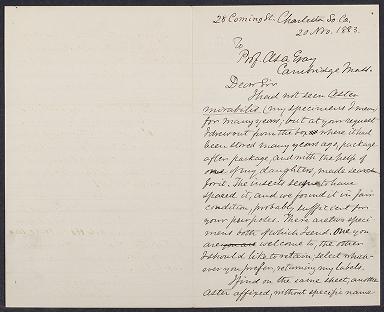 28 Coming St. Charleston So Ca.
20 Nov. 1883.
To
Prof. Asa Gray
Cambridge Mass.
Dear Sir
I had not seen Aster
mirabilis (my specimens I mean)
for many years, but at your request
I drew out from the box where it had
been stored many years ago, package
after package, and with the help of
one of my daughters, made search
for it. The insects seem to have
spared it, and we found it in fair
condition, probably sufficient for
your purposes. There are two speci
mens both of which I send. One you
are you are welcome to, the other
I should like to retain, select which-
ever you prefer, returning my labels.
I find on the same sheet, another
Aster affixed, without specific name